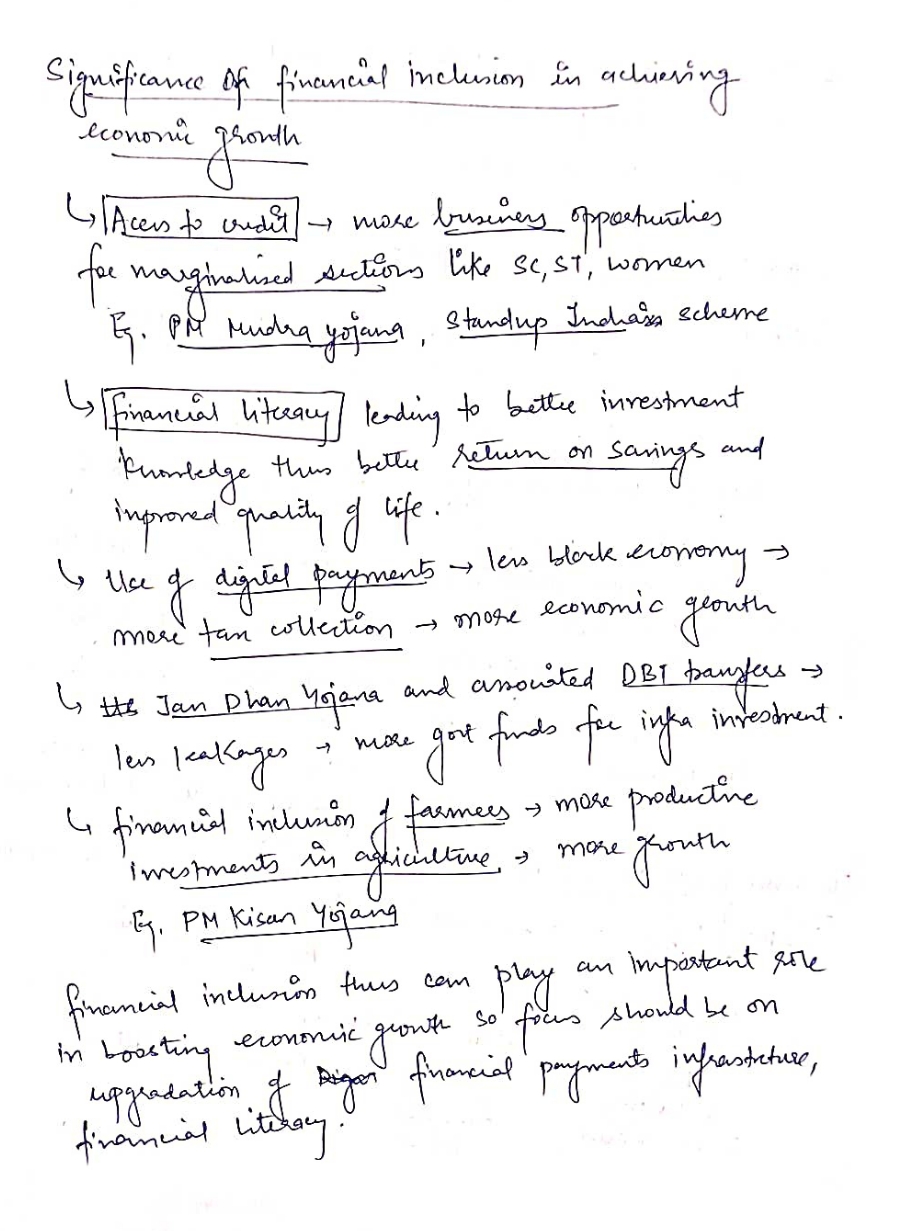 Significance of financial inclusion in achieving
economic growth
↳ Access to credit → more business opportunities
for marginalised sections like SC, ST, women
Eg. PM Mudra yojana, Standup India scheme
↳ financial literacy leading to better investment
knowledge thus better return on savings and
improved quality of life.
↳ Use of digital payments → less black economy →
more tax collection → more economic growth
↳ Jan Dhan Yojana and associated DBT transfers →
less leakages → more govt funds for infra investment.
↳ financial inclusion of farmers → more productive
investments in agriculture → more growth
Eg. PM Kisan Yojana
financial inclusion thus can play an important role
in boosting economic growth so focus should be on
upgradation of financial payments infrastrture,
financial literacy.